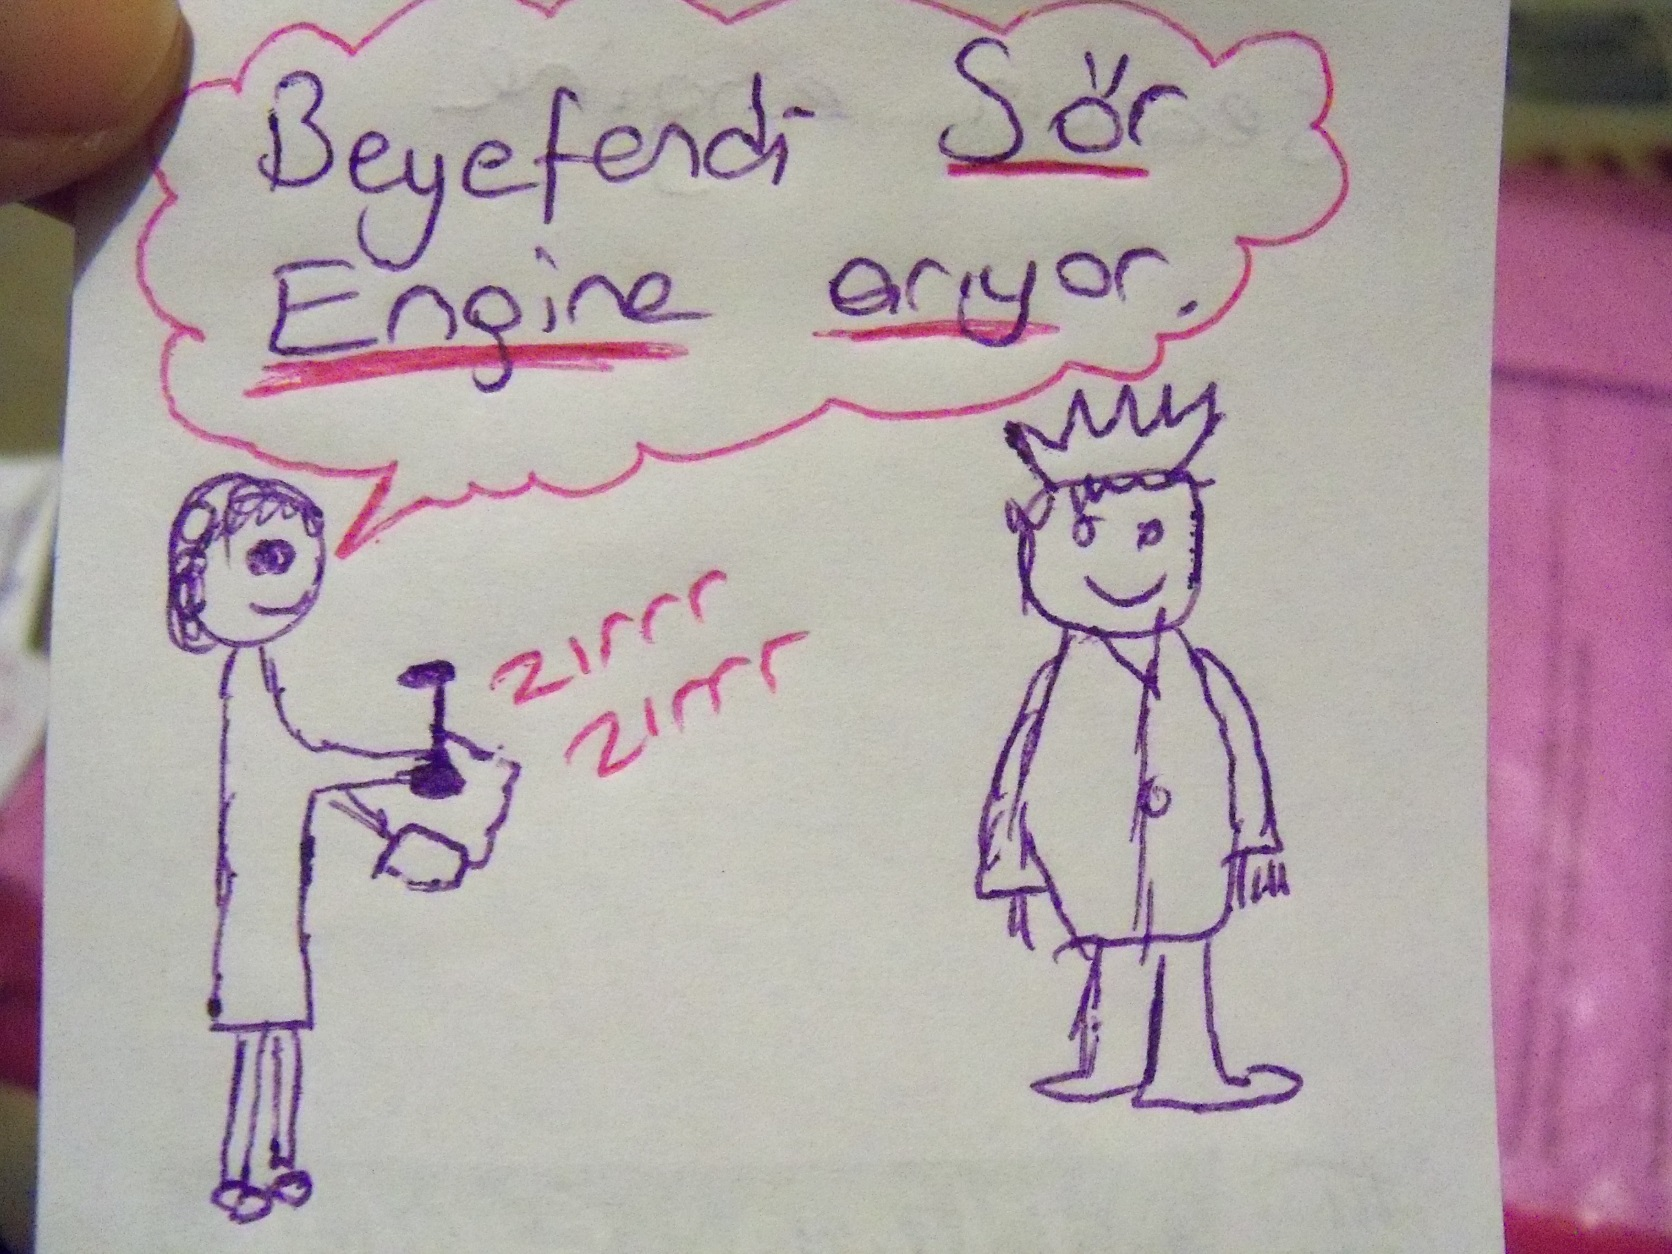 Beyefendi Sör
Engine arıyor.
zırrr
zırrr